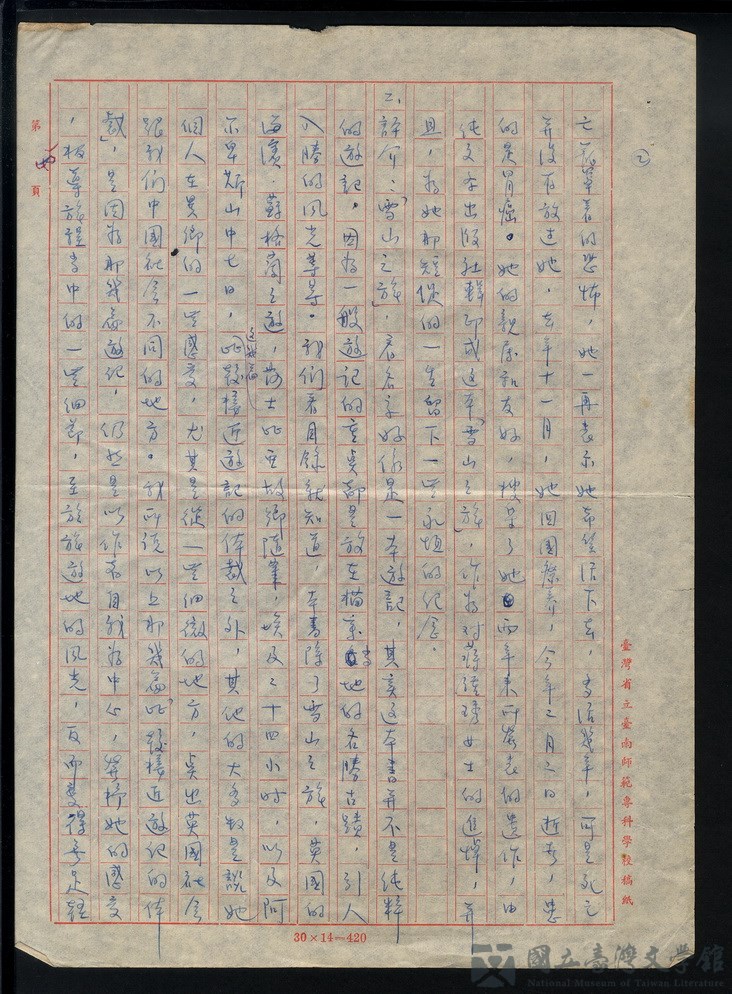 ②
亡□籠罩着的恐怖，她一再表示她希望活下去，多活幾年，可是死亡
並沒有放過她，去年十一月，她回國療養，今年二月二日逝去，患
的是胃癌。她的親屬和友好，搜集了她兩年來所發表的遺作，由
純文學出版社輯印成這本「雪山之旅」，作為對蔣□琇女士的追悼，并
且，為她那短促的一生留下一些永恆的紀念。
二、評介：「雪山之旅」，看名字好像是一本遊記，其實這本書并不是純粹
的遊記。因為一般遊記的重點都是放在描寫當地的名勝古蹟，引人
入勝的風光等等。我們看目錄就知道，本書除了雪山之旅，英國的
海濱，蘇格蘭之遊，莎士比亞故鄉隨筆，埃及二十四小時，以及阿
尔卑斯山中七日，這幾篇比較接近遊記的体裁之外，其他的大多数是說她
個人在異鄉的一些感受，尤其是從一些細微的地方，點出英國社會
跟我們中國社會不同的地方。我所說以上那幾篇「比較接近遊記的体
裁」，是因為那幾篇遊記，仍然是以作者自我為中心，發抒她的感受
，报導旅程當中的一些細節，至於旅遊地的風光，反而變得無足輕
第 四 頁
臺灣省立臺南師範專科學校稿紙
30×14—420
國立臺灣文學館
National Museum of Taiwan Literature